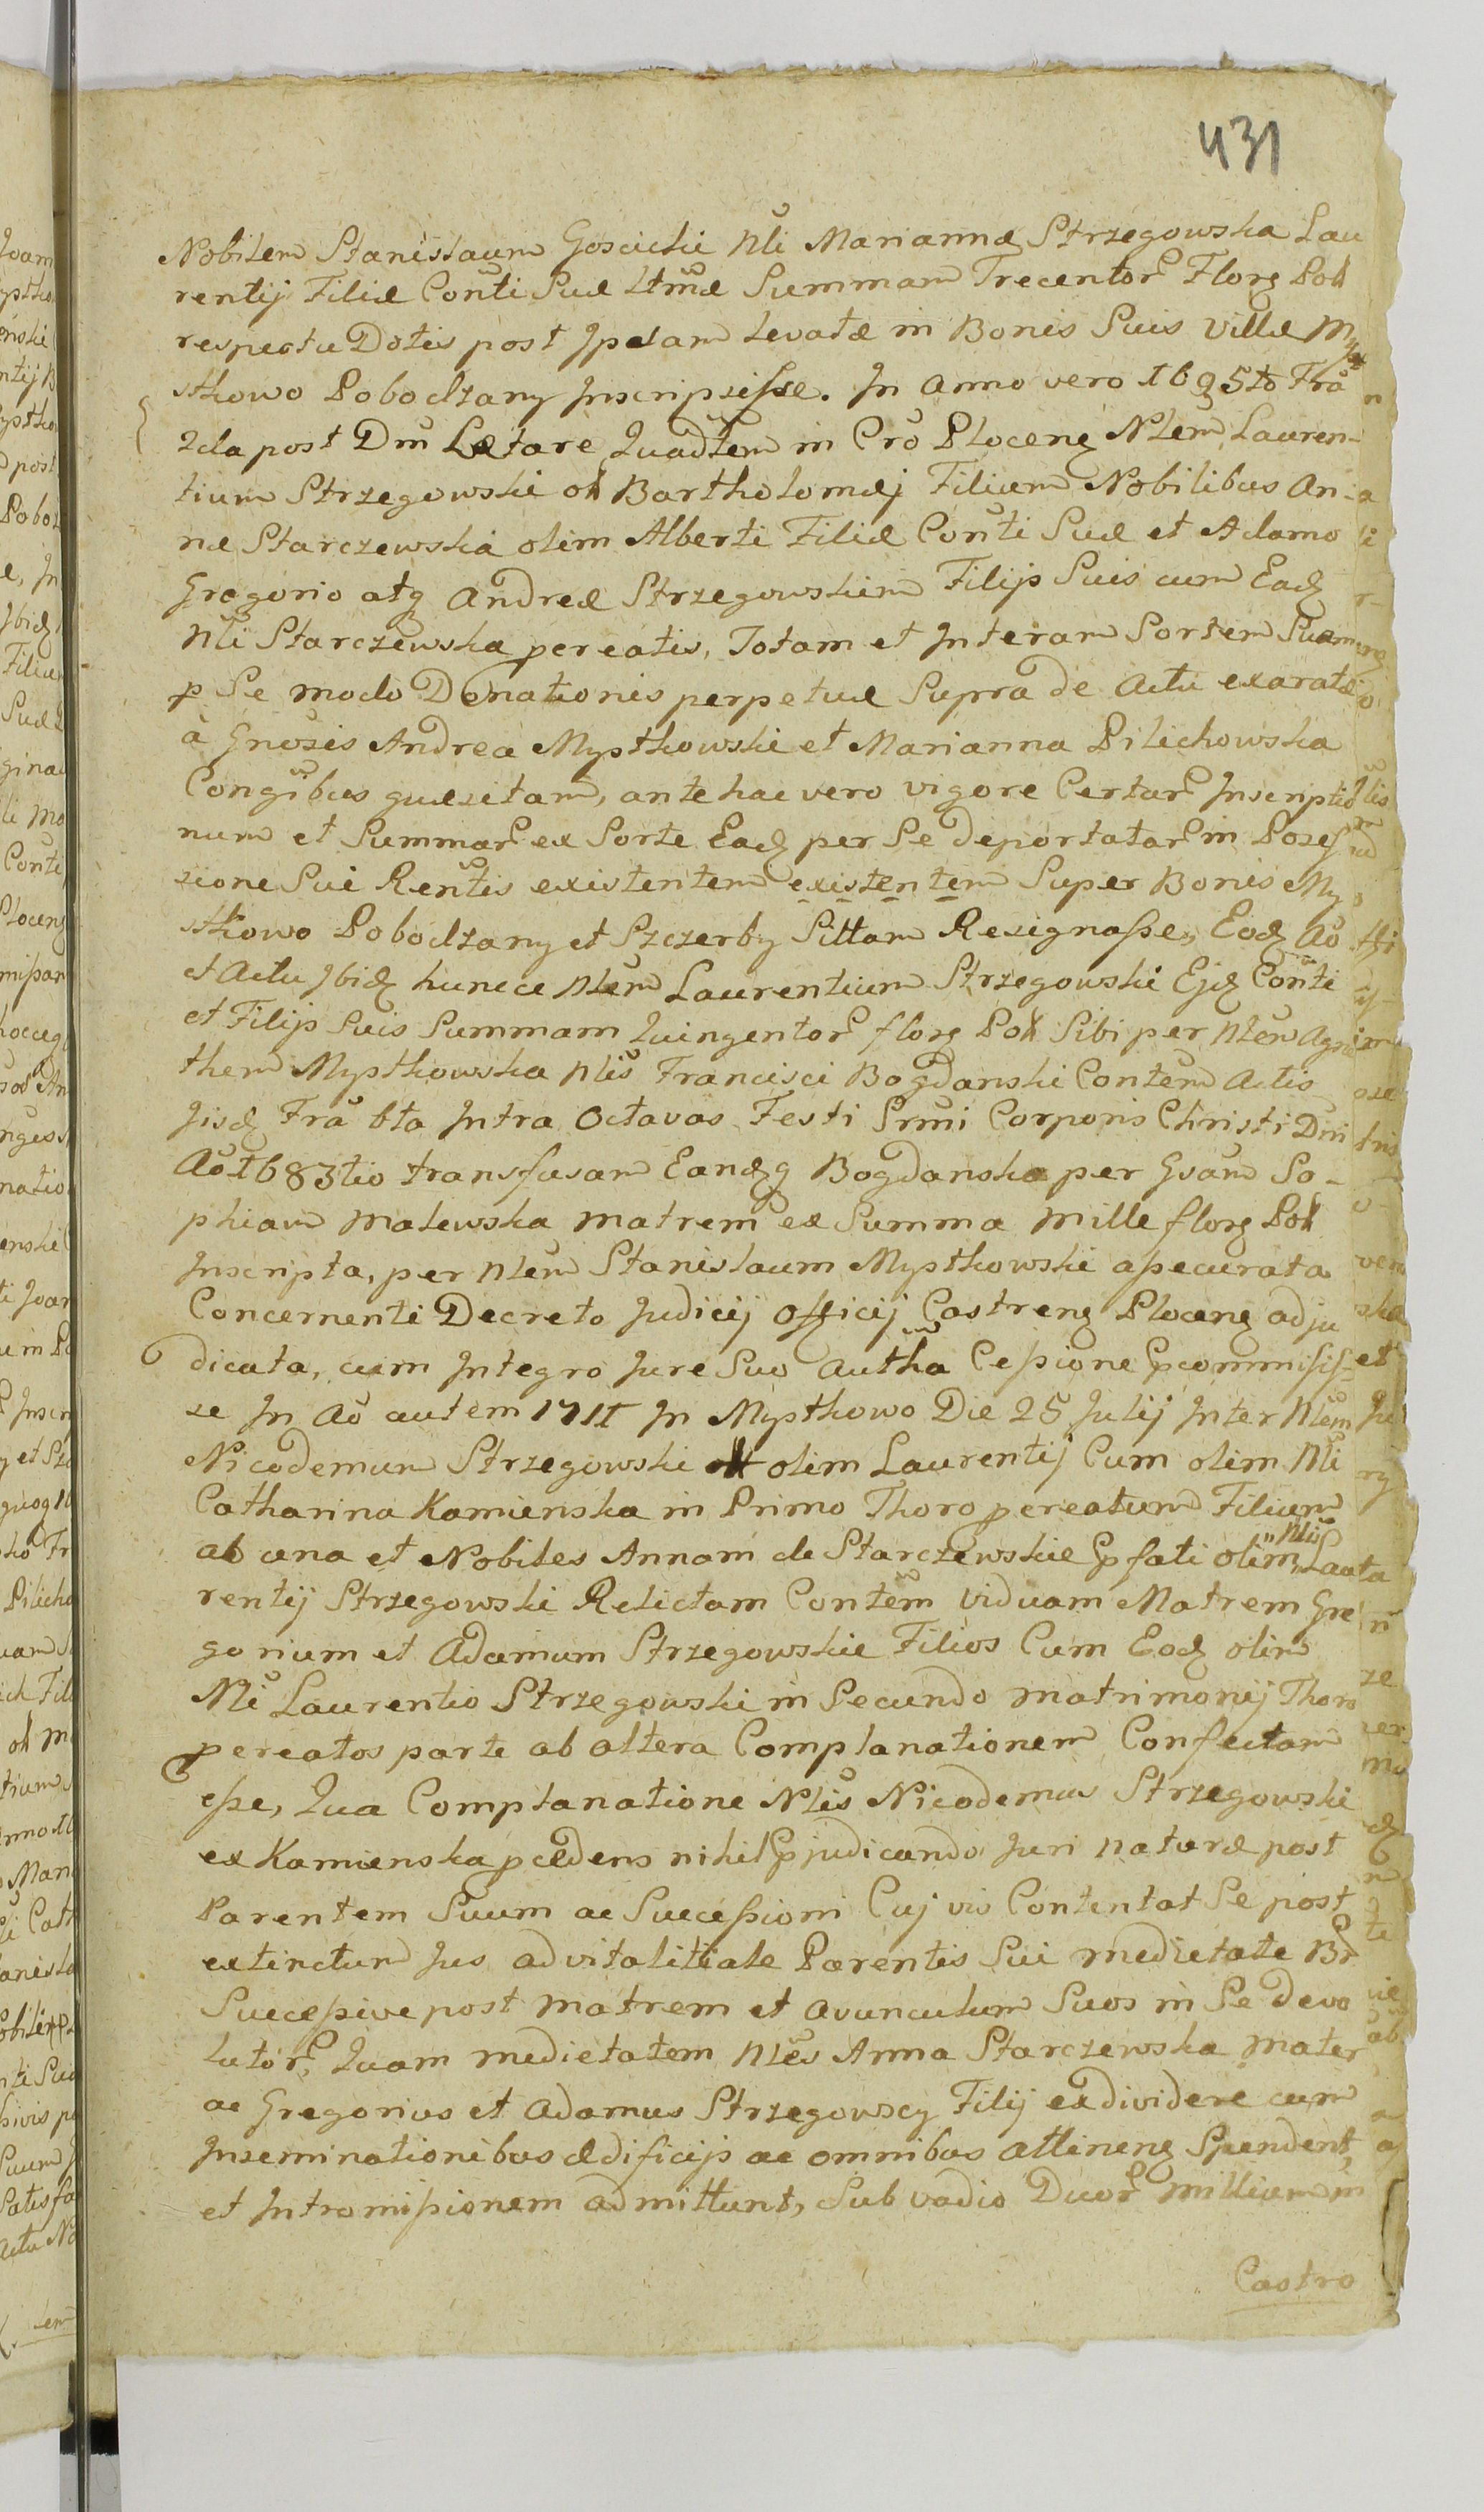 431
Nobilem Stanislaum Goscicki Nli Mariannæ Strzegowska Lau
rentij Filiæ Conti Suæ Ltmæ Summam Trecentor Florg Pol
respectu Dotis post Jpsam Levatæ in Bonis Suis Villæ My
stkowo Pobodzany Jnscripsisse. Jn Anno vero 1695to Fra
2da post Dm Lætare Quadtem in Cro Ploceng Nlem Lauren-
tium Strzegowski ol Bartholomæj Filium Nobilibus An-
næ Starczewska olim Alberti Filiæ Conti Suæ et Adamo
Gregorio atq Andreæ Strzegowskim Filijs Suis cum Eadg
Nli Starczewska pcreatis, Totam et Jnteram Sortem Suam
p Se modo Donationis perpetuæ Supra de Actu exaratæ
à Gnosis Andrea Mystkowski et Marianna Pilichowska
Congibus quæsitam, ante hac vero vigore Certar Jnscriptio
num et Summar ex Sorte Eadg per Se deportatar in Posses
sione Sui Rentis existentem existentem Super Bonis My
stkowo Pobodzany et Szczerby Sittam Resignasse, Eodg Ao
et Actu Jbidg huncce Nlem Laurentium Strzegowski Ejdg Conti
et Filijs Suis Summam Quingentor florg Pol Sibi per Nlem Agne
them Mystkowska Nlis Francisci Bogdanski Contem Actis
Jisdg Fra 6ta Jntra Octavas Festi Srmi Corporis Christi Dni
Ao 1683tio transfusam Eandg q Bogdanska per Gsam So-
phiam Malewska matrem ex Summa mille florg Pol
Jnscripta, per Nlem Stanislaum Mystkowski assecurata
Concernenti Decreto Judicij Officij Castreng Ploceng adju
dicata, cum Jntegro Jure Suo Autha Cessione Pcommisis-
se Jn Ao autem 1711 Jn Mystkowo Die 25 Julij Jnter Nlem
Nicodemum Strzegowski olim Laurentij Cum olim Nli
Catharina Kamienska in Primo Thoro pcreatum Filium
ab una et Nobiles Annam de Starczewskie Pfati olim Nlis Lau
rentij Strzegowski Relictam Contem viduam Matrem Gre
gorium et Adamum Strzegowskie Filios Cum Eodg olim
Nli Laurentio Strzegowski in Secundo matrimonij Thoro
pcreatos parte ab altera Complanationem Confectam
esse, Qua Complanatione Nlis Nicodemus Strzegowski
ex Kamienska pcedens nihil Pjudicando Juri naturæ post
Parentem Suum ac Successioni Cuj vis Contentat Se post
extinctum Jus advitalitiale Parentis Sui medietate Br
Successive post matrem et avunculum Suos in Se devo
lutor, Quam medietatem Nles Anna Starczewska mater
ac Gregorius et Adamus Strzegowscy Filij exdividere cum
Jnseminationibus ædificijs ac omnibus attineng Spendent,
et Jntromissionem admittunt, Sub vadio Duor millium in
Castro